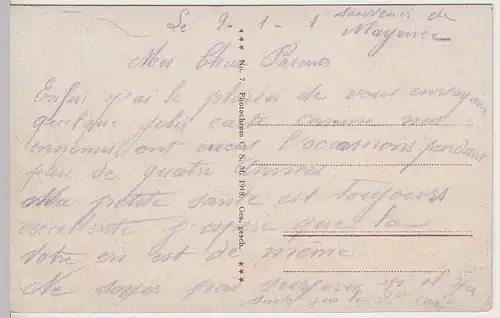 Le 9-1-1 souvenir de
Mayence
Mes Chers Parents
Enfin j'ai le plaisir de vous envoyer
quelque jolis carte comme nos
ennemis ont eues l'occassions pendant
plus de quatre années
Ma petite santé est toujours
excellente j'espère que la
votre en est de même
Ne soyez pas si il y a
suite sur la 2em carte
*** No. 7. Photochrom C. S. M. 1918. Ges. gesch. ***